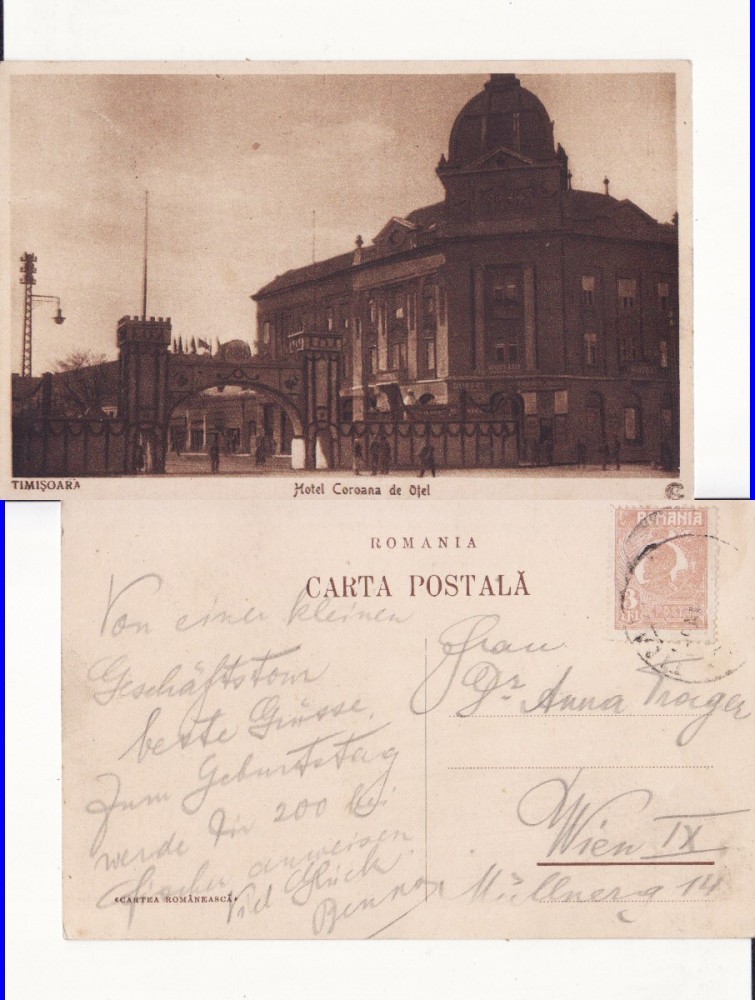 TIMIȘOARA
Hotel Coroana de Oțel
ROMANIA
CARTA POSTALĂ
ROMANIA
3 LEI
POSTA
Von einer kleinen
Geschäftstour
beste Grüsse.
Zum Geburtstag
werde Dir 200 bei
Fischer anweisen.
Viel Glück
Benno
Frau
Dr Anna Troger
Wien IX
Müllnerg 14
«CARTEA ROMÂNEASCĂ»